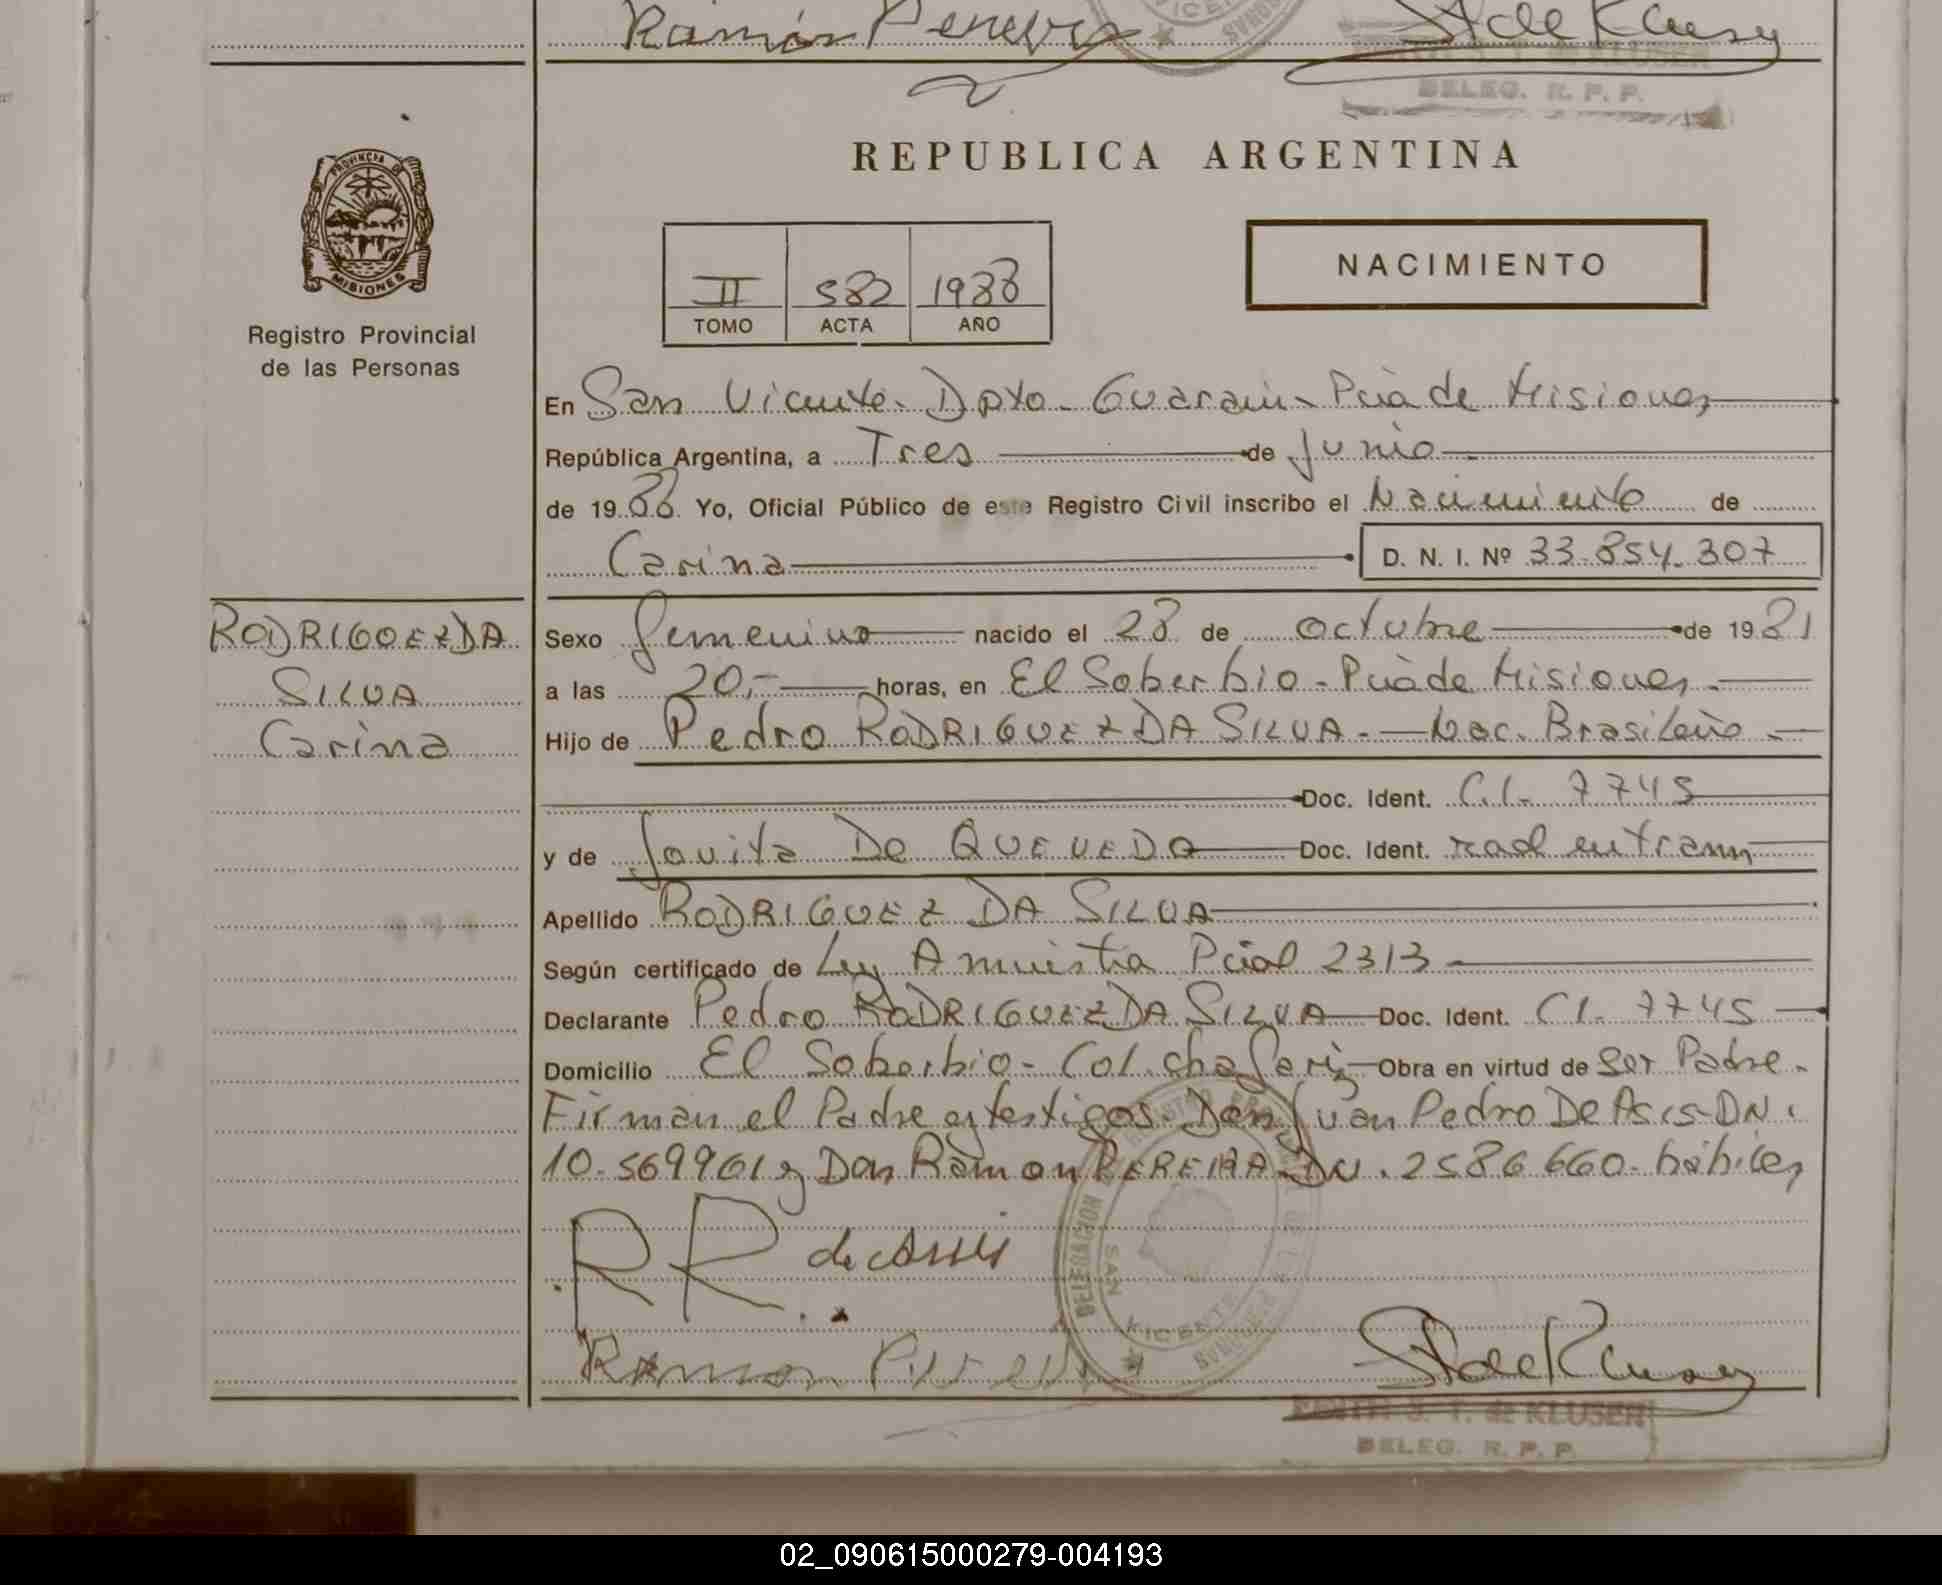 Ramón Pereyra
S T de Klusen
EDITH S. T. de KLUSEN
DELEG. R. P. P.
PROVINCIA DE
MISIONES
Registro Provincial
de las Personas
REPUBLICA ARGENTINA
II 582 1988
TOMO ACTA AÑO
NACIMIENTO
En San Vicente - Dpto - Guaraní - Pcia de Misiones
República Argentina, a Tres de Junio
de 1988 Yo, Oficial Público de este Registro Civil inscribo el Nacimiento de
Carina D. N. I. Nº 33.854.307
RODRIGUEZ DA
SILVA
Carina
Sexo femenino nacido el 28 de octubre de 1981
a las 20.- horas, en El Soberbio - Pcia de Misiones.
Hijo de Pedro RODRIGUEZ DA SILVA. - Nac. Brasileño -
Doc. Ident. C.I. 7745
y de Jovita De QUEVEDO Doc. Ident. rad en tram
Apellido RODRIGUEZ DA SILVA
Según certificado de Ley Amnistia Pcial 2313
Declarante Pedro RODRIGUEZ DA SILVA Doc. Ident. CI. 7745
Domicilio El Soberbio - Col. Chafariz Obra en virtud de ser Padre.
Firman el Padre y testigos Don Juan Pedro De Asis - DNI
10.569961 y Don Ramon PEREIRA DNI. 2586660 - hábiles
R R. de Asis
Ramon
S T de Klusen
EDITH S. T. de KLUSEN
DELEG. R. P. P.
DELEGACION
SAN VICENTE
02_090615000279-004193